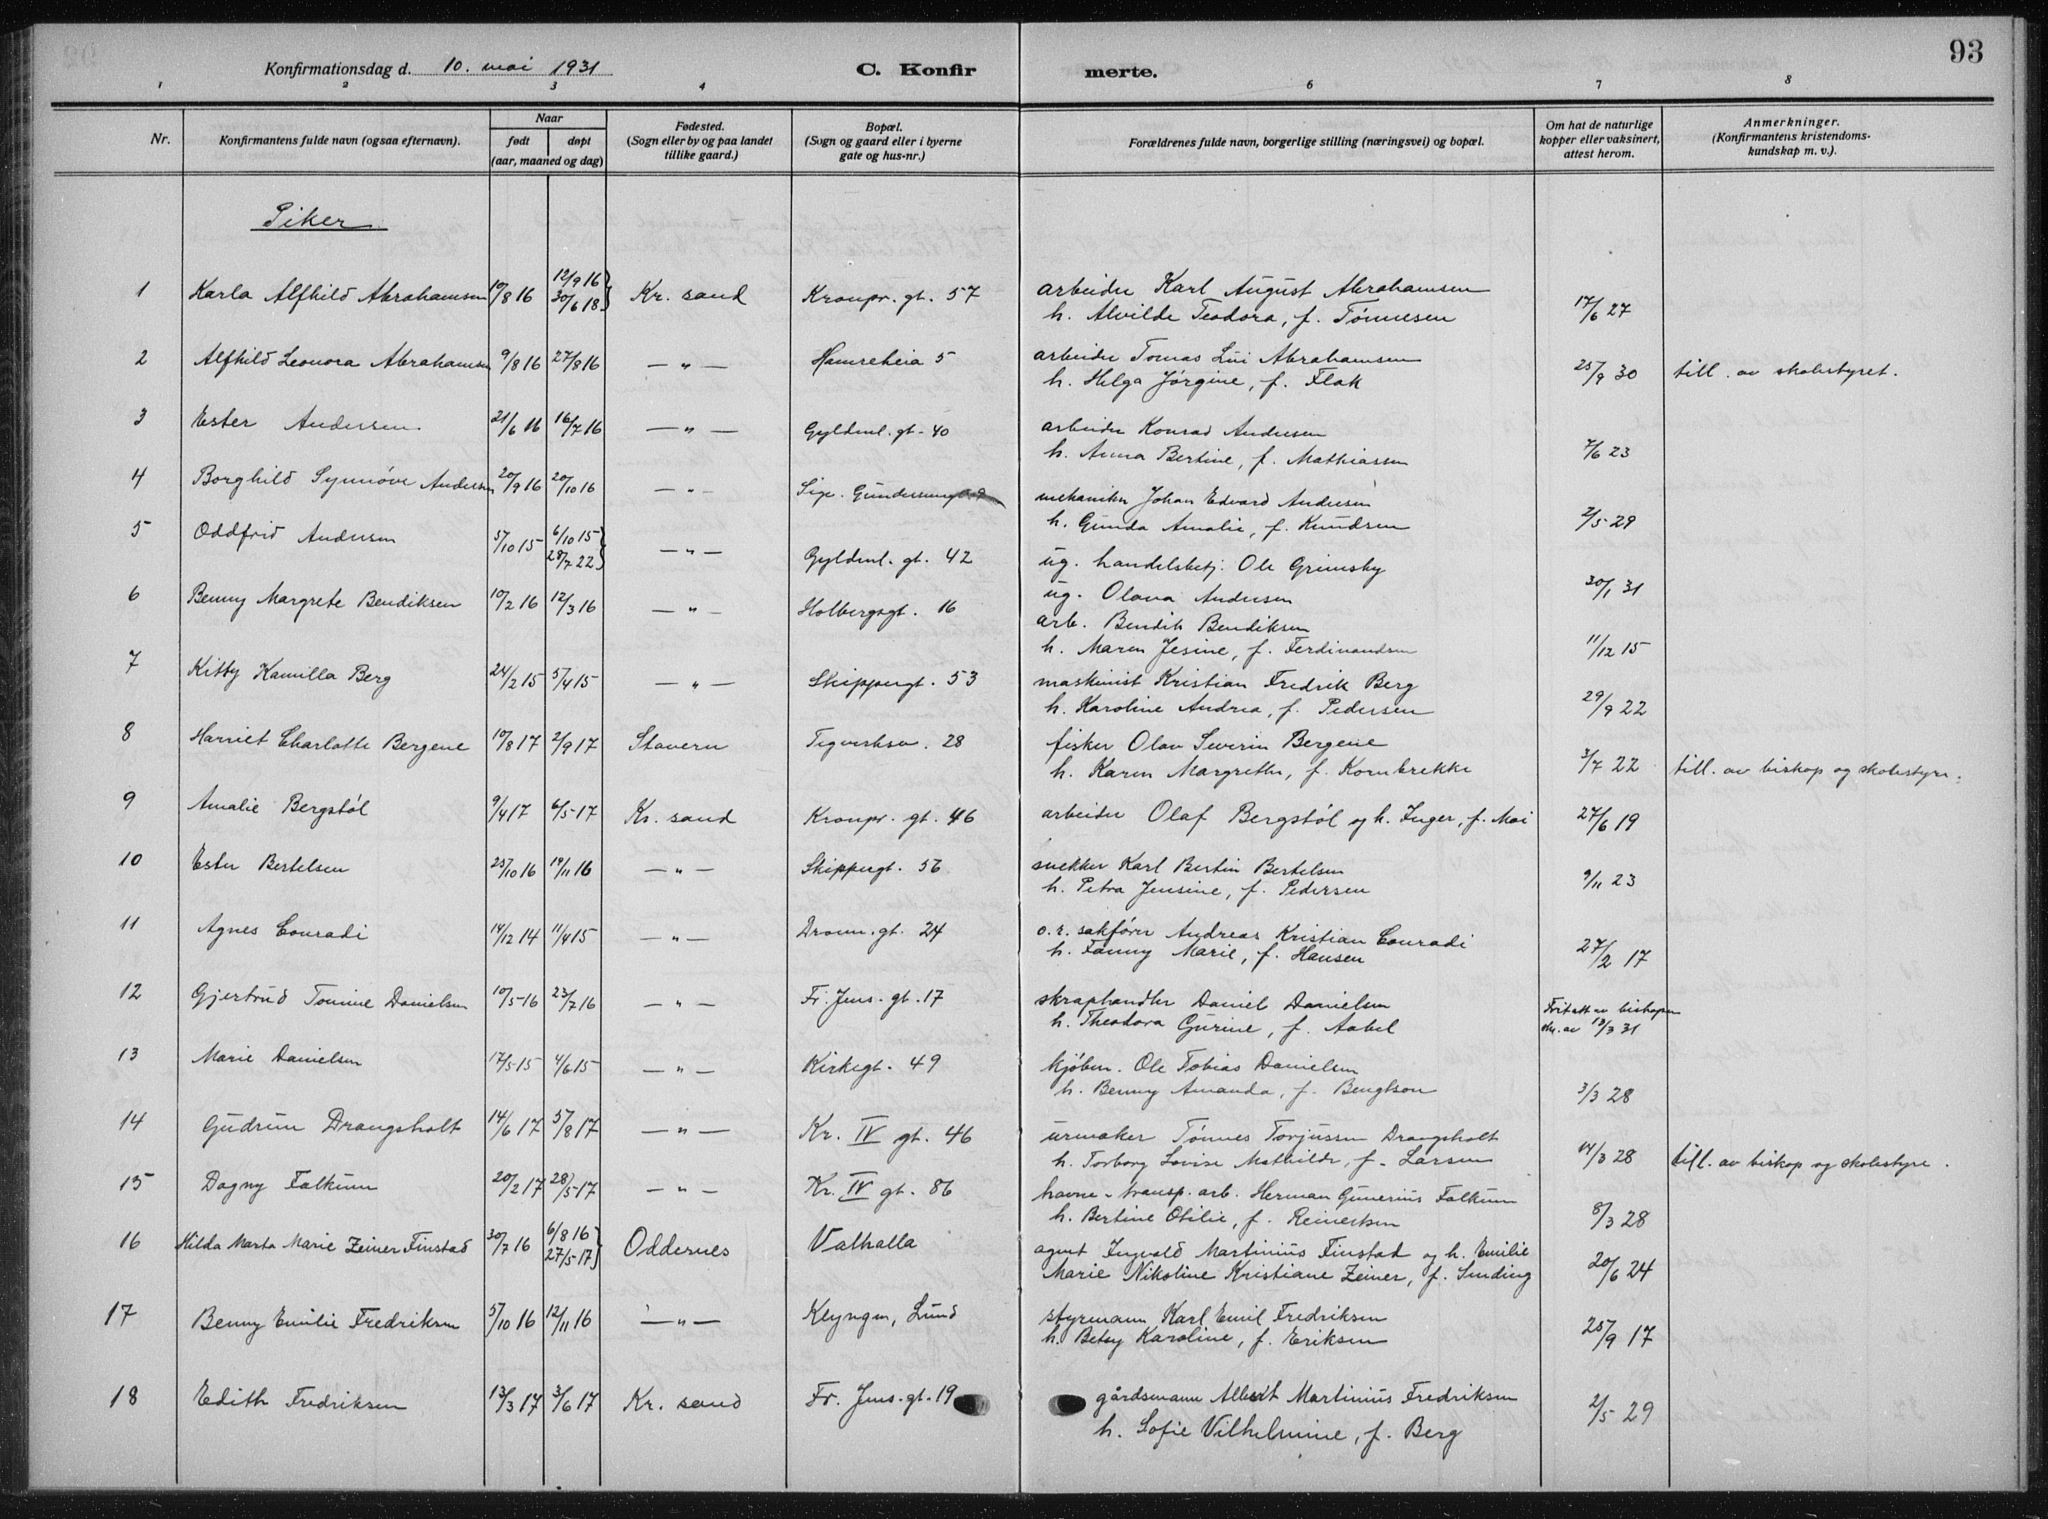 93
Konfirmationsdag d. 10. mai 1931 C. Konfirmerte.
1 2 3 4 6 7 8
Nr. Konfirmantens fulde navn (ogsaa efternavn). Naar født døpt (aar, maaned og dag) Fødested. (Sogn eller by og paa landet tillike gaard.) Bopæl. (Sogn og gaard eller i byerne gate og hus-nr.) Forældrenes fulde navn, borgerlige stilling (næringsvei) og bopæl. Om hat de naturlige kopper eller vaksinert, attest herom. Anmerkninger. (Konfirmantens kristendoms-kundskap m. v.).
Piker
1 Karla Alfhild Abrahamsen 10/8 16 12/9 16 30/6 18 Kr. sand Kronpr. gt. 57 arbeider Karl August Abrahamsen 17/6 27
h. Alvilde Teodora, f. Tønnesen
2 Alfhild Leonora Abrahamsen 9/8 16 27/8 16 — " — Hamreheia 5 arbeider Tomas Lui Abrahamsen 25/9 30 till. av skolestyret.
h. Helga Jørgine, f. Flak
3 Ester Andersen 21/6 16 16/7 16 — " — Gyldenl. gt. 40 arbeider Konrad Andersen 7/6 23
h. Anna Bertine, f. Mathiassen
4 Borghild Synnøve Andersen 20/9 16 20/10 16 — " — mekaniker Johan Edvard Andersen 2/5 29
h. Gunda Amalie, f. Knudsen
5 Oddfrid Andersen 5/10 15 6/10 15 28/7 22 — " — Gyldenl. gt. 42 ug. handelsbetj. Ole Grimsby 30/1 31
ug. Olava Andersen
6 Benny Margrete Bendiksen 10/2 16 12/3 16 — " — Holbergsgt. 16 arb. Bendik Bendiksen 11/12 15
h. Maren Jesine, f. Ferdinandsen
7 Kitty Kamilla Berg 24/2 15 5/4 15 — " — Skippergt. 53 maskinist Kristian Fredrik Berg 29/9 22
h. Karoline Andrea, f. Pedersen
8 Harriet Charlotte Bergene 10/8 17 2/9 17 Stavern 28 fisker Olav Severin Bergene 3/7 22 till. av biskop og skolestyre.
h. Karen Margrethe, f. Kornbrekke
9 Amalie Bergstøl 9/4 17 6/5 17 Kr. sand Kronpr. gt. 46 arbeider Olaf Bergstøl og h. Inger, f. Moi 27/6 19
10 Ester Bertelsen 25/10 16 19/11 16 — " — Skippergt. 56 snekker Karl Bertin Bertelsen 9/11 23
h. Petra Jensine, f. Pedersen
11 Agnes Conradi 14/12 14 11/4 15 — " — Dronn. gt. 24 o. r. sakfører Andreas Kristian Conradi 27/2 17
h. Fanny Marie, f. Hansen
12 Gjertrud Tomine Danielsen 10/5 16 23/7 16 — " — Fr. Jens. gt. 17 skraphandler Daniel Danielsen Fritatt av biskopen
h. Theodora Gurine, f. Aabel skr. av 13/3 31
13 Marie Danielsen 17/5 15 4/6 15 — " — Kirkegt. 49 kjøbm. Ole Tobias Danielsen 3/3 28
h. Benny Amanda, f. Bengtson
14 Gudrun Drangsholt 14/6 17 5/8 17 — " — Kr. IV gt. 46 urmaker Tønnes Torjussen Drangsholt 14/3 28 till. av biskop og skolestyre.
h. Torborg Lovise Mathilde, f. Larsen
15 Dagny Falkum 20/2 17 28/5 17 — " — Kr. IV gt. 86 havne-transp. arb. Herman Gunerius Falkum 8/3 28
h. Bertine Otilie, f. Reinertsen
16 Hilda Marta Marie Zeiner Finstad 30/7 16 6/8 16 27/5 17 Oddernes Valhalla agent Ingvald Martinius Finstad og h. Emilie 20/6 24
Marie Nikoline Kristiane Zeiner, f. Sinding
17 Benny Emilie Fredriksen 5/10 16 12/11 16 — " — Kleyngen, Lund styrmann Karl Emil Fredriksen 25/9 17
h. Betsy Karoline, f. Eriksen
18 Edith Fredriksen 13/3 17 3/6 17 Kr. sand Fr. Jens. gt. 19 gårdsmann Albert Martinius Fredriksen 2/5 29
h. Sofie Vilhelmine, f. Berg